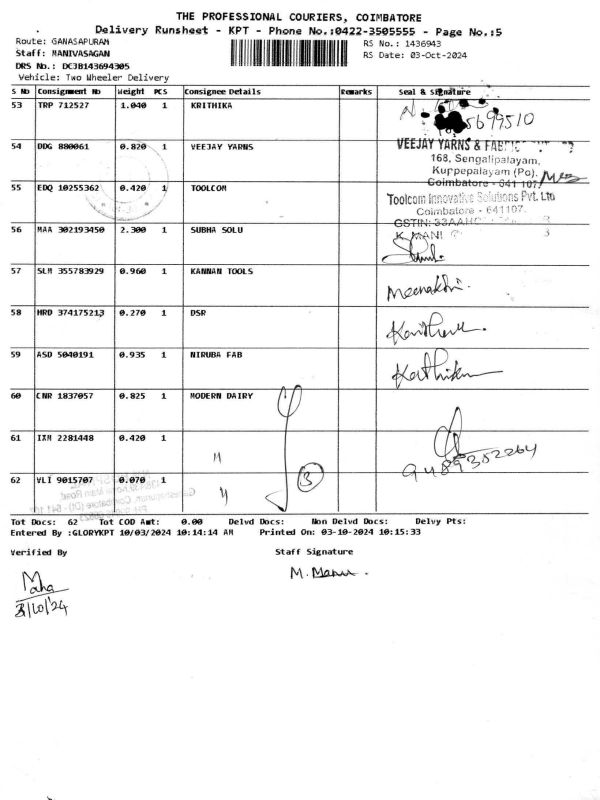 THE PROFESSIONAL COURIERS, COIMBATORE
Delivery Runsheet - KPT - Phone No.:0422-3505555 - Page No.:5
Route: GANASAPURAM RS No.: 1436943
Staff: MANIVASAGAN RS Date: 03-Oct-2024
DRS No.: DC3B143694305
Vehicle: Two Wheeler Delivery
S No Consignment No Weight PCS Consignee Details Remarks Seal & Signature
53 TRP 712527 1.040 1 KRITHIKA
5699510
54 DDG 880061 0.820 1 VEEJAY YARNS
VEEJAY YARNS &
168, Sengalipalayam,
Kuppepalayam (Po).
Coimbatore - 641 107
55 EDQ 10255362 0.420 1 TOOLCOM
Toolcom Innovative Solutions Pvt. Ltd
Coimbatore - 641107.
GSTIN: 33AAH
56 MAA 302193450 2.300 1 SUBHA SOLU
K. MANI
57 SLM 355783929 0.960 1 KANNAN TOOLS
Meenakshi.
58 HRD 374175213 0.270 1 DSR
59 ASD 5040191 0.935 1 NIRUBA FAB
Karthika
60 CNR 1837057 0.825 1 MODERN DAIRY
61 IXM 2281448 0.420 1 〃
9489352264
62 VLI 9015707 0.070 1 〃
3
Tot Docs: 62 Tot COD Amt: 0.00 Delvd Docs: Non Delvd Docs: Delvy Pts:
Entered By :GLORYKPT 10/03/2024 10:14:14 AM Printed On: 03-10-2024 10:15:33
Verified By Staff Signature
Maha M. Manu.
3/10/24